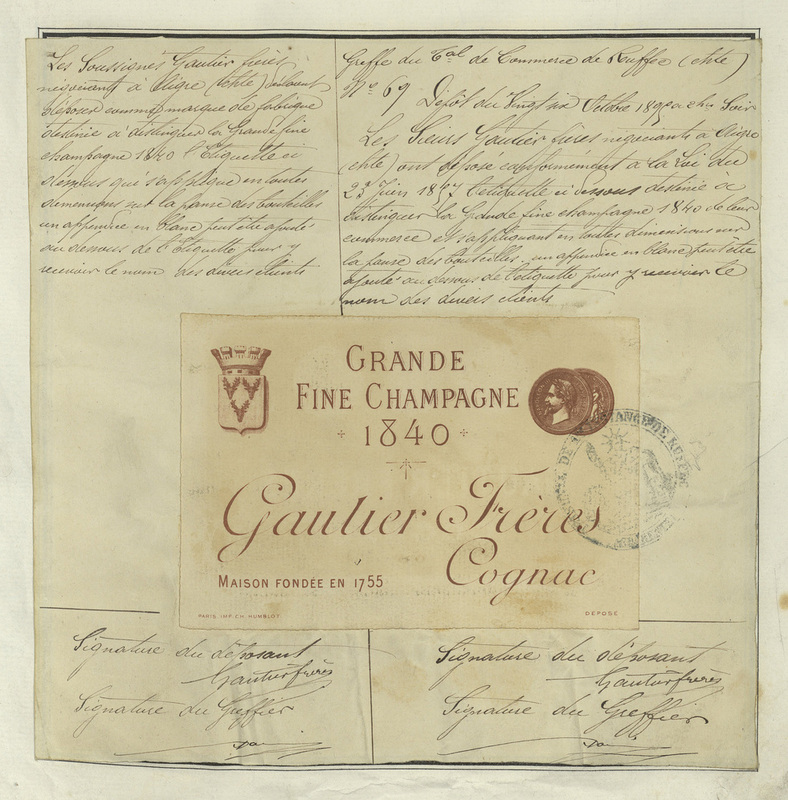 Les Soussignés Gautier frères
négociants à Aigre (chte)
déposer comme marque de fabrique
destinée à distinguer la Grande fine
champagne 1840 l'Etiquette ci
dessous qui s'applique en toutes
dimensions sur la panse des bouteilles
un appendice en blanc peut être ajouté
au dessous de l'Etiquette pour y
recevoir le nom des divers clients
Greffe du Tal de Commerce de Ruffec (chte)
No 69 Dépôt du Vingt six Octobre
Les Sieurs Gautier frères négociants à Aigre
(chte) ont déposé conformément à la Loi du
23 Juin l'etiquette ci dessous destinée à
distinguer la Grande fine champagne 1840 de leur
commerce et s'appliquant en toutes dimensions sur
la panse des bouteilles, un appendice en blanc peut être
ajouté au dessous de l'etiquette pour y recevoir le
nom des divers clients
GRANDE
FINE CHAMPAGNE
1840
Gautier Frères
Cognac
MAISON FONDÉE EN 1755
PARIS IMP. CH. HUMBLOT
DÉPOSÉ
Signature du déposant
Gautier frères
Signature du Greffier
Signature du déposant
Gautier frères
Signature du Greffier